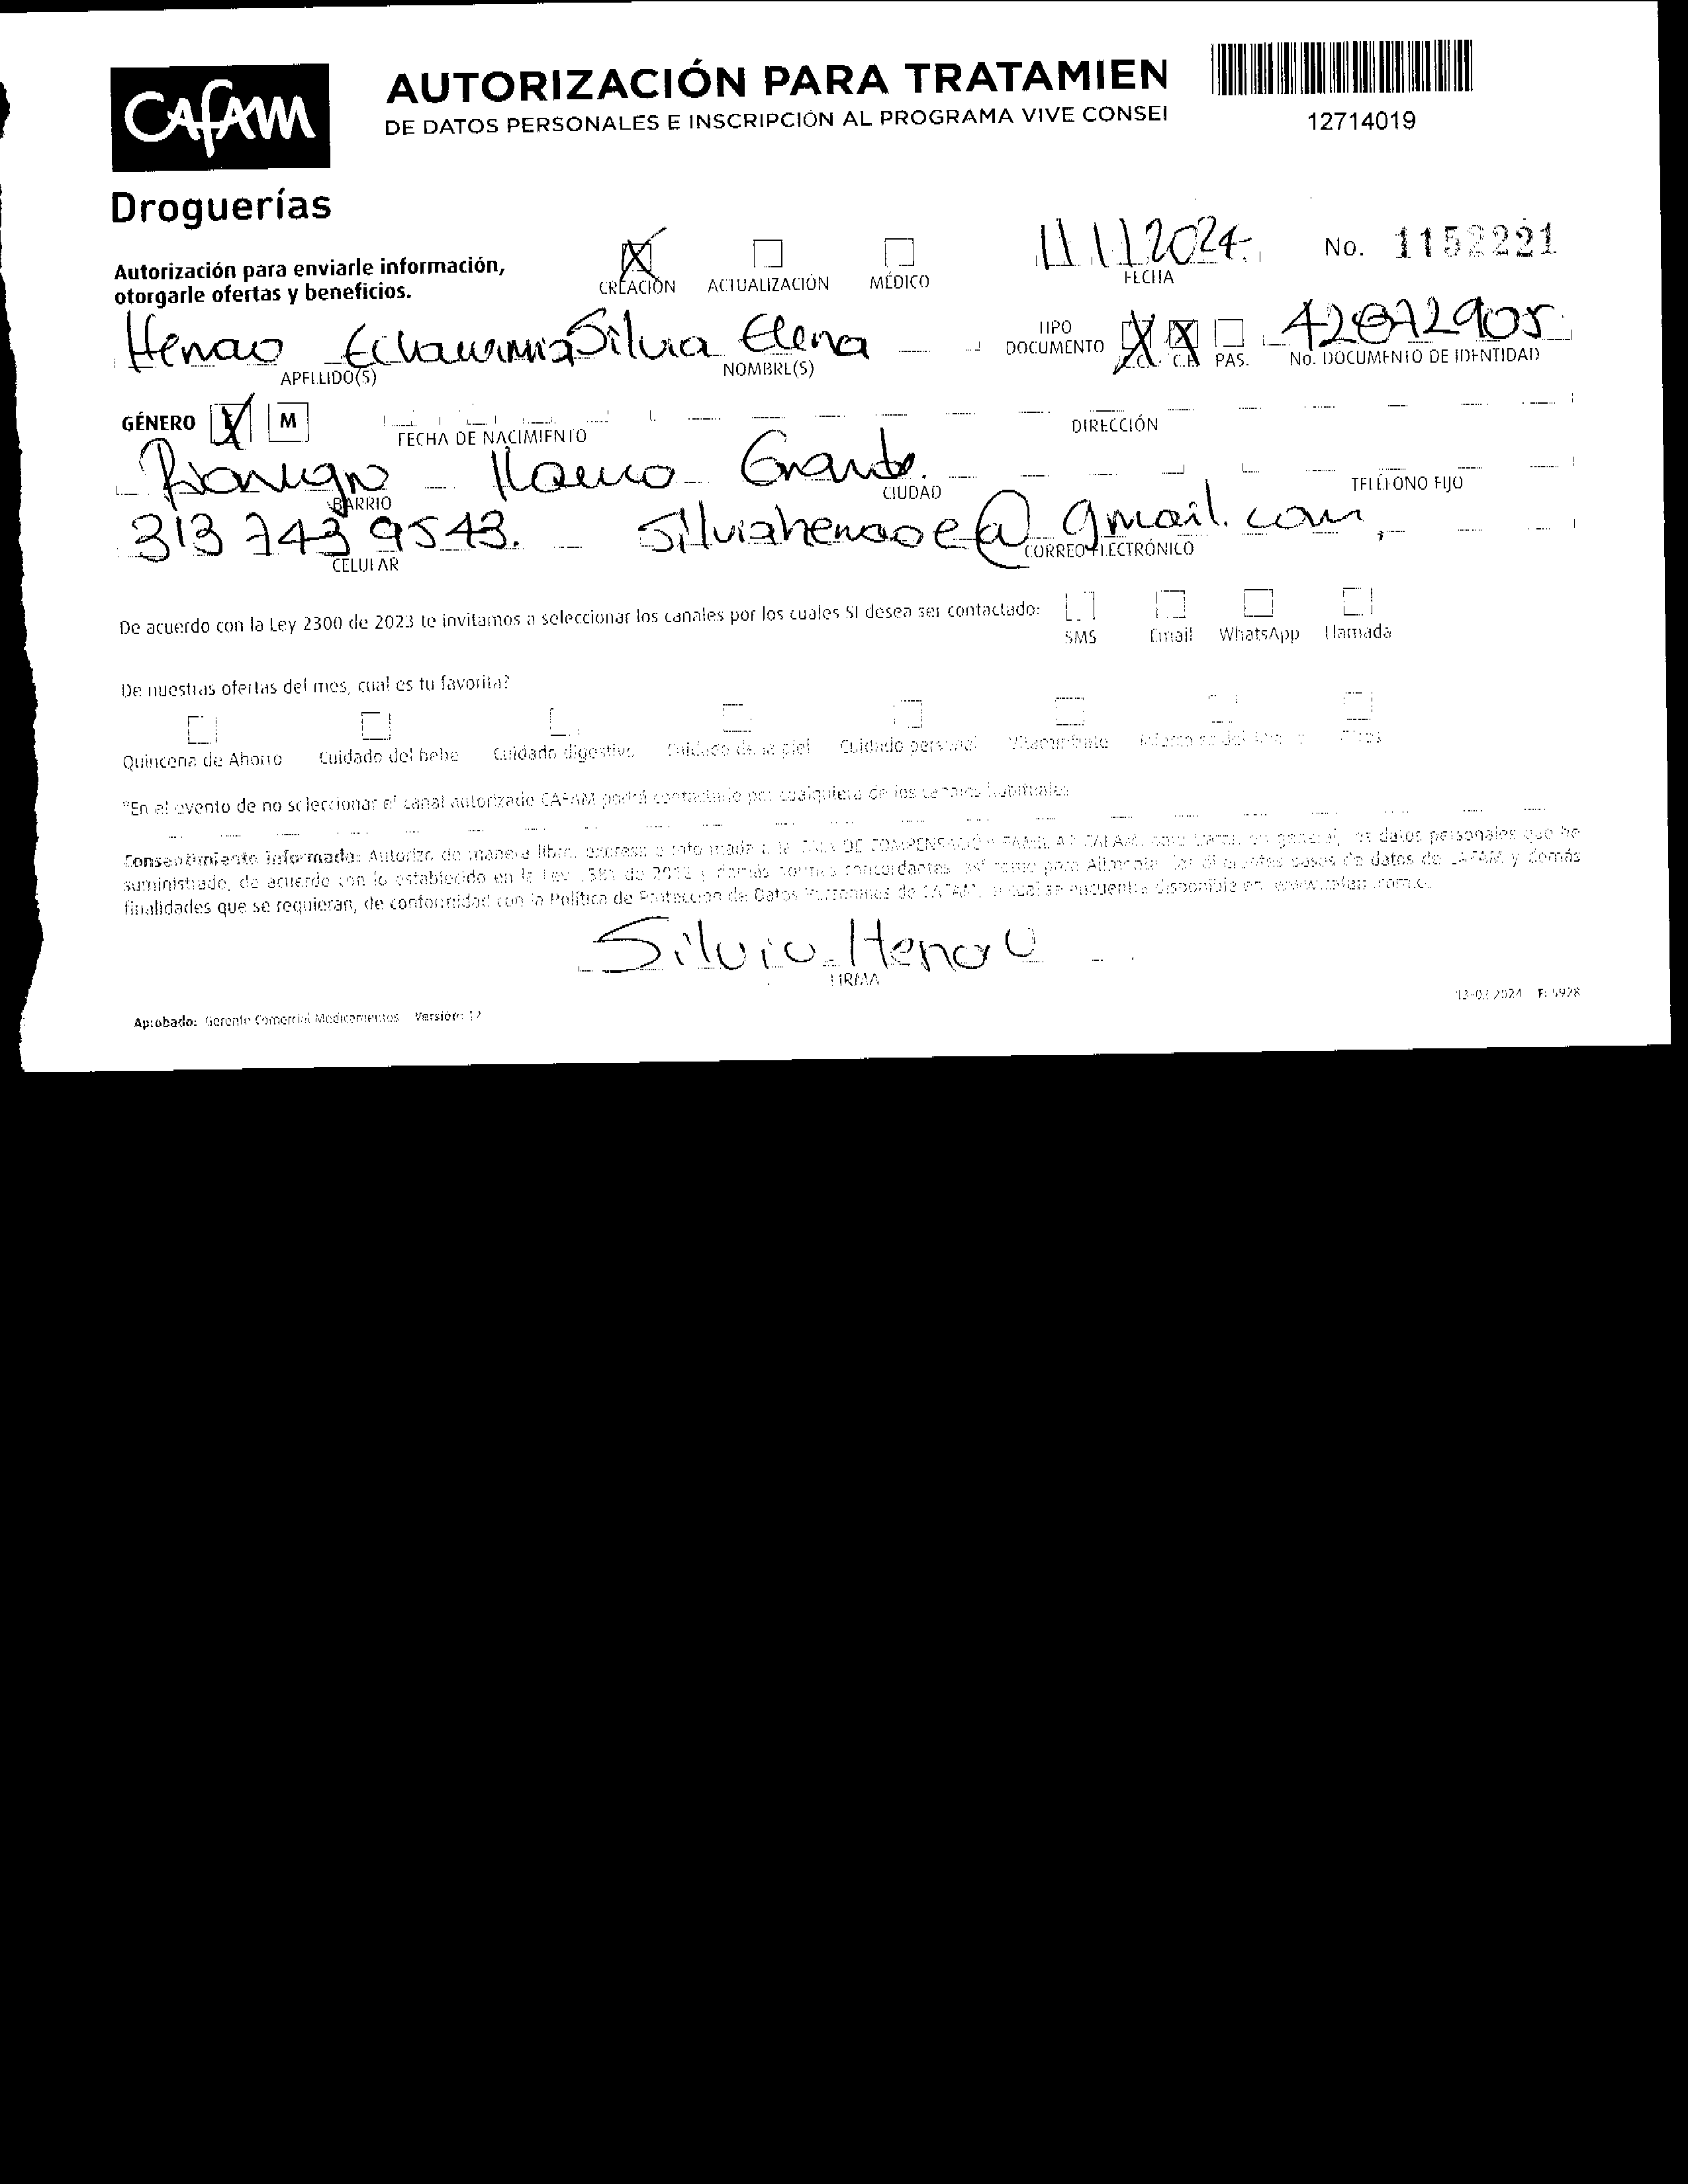 CAFAM
Droguerías
AUTORIZACIÓN PARA TRATAMIEN
DE DATOS PERSONALES E INSCRIPCIÓN AL PROGRAMA VIVE CONSEI
12714019
Autorización para enviarle información,
otorgarle ofertas y beneficios.
X CREACIÓN ACTUALIZACIÓN MÉDICO
11 11 2024
FECHA
No. 1152221
Henao Echavarria Silvia Elena
APELLIDO(S) NOMBRE(S)
TIPO
DOCUMENTO X C.C. X C.E. PAS.
42872905
No. DOCUMENTO DE IDENTIDAD
GÉNERO X M
FECHA DE NACIMIENTO DIRECCIÓN
Rionegro Llano Grande.
BARRIO CIUDAD TELÉFONO FIJO
313 743 9543. silviahenaoe@gmail.com
CELULAR CORREO ELECTRÓNICO
De acuerdo con la Ley 2300 de 2023 te invitamos a seleccionar los canales por los cuales SI desea ser contactado:
SMS Email WhatsApp Llamada
De nuestras ofertas del mes, cual es tu favorita?
Quincena de Ahorro Cuidado del bebe Cuidado digestivo Cuidado de la piel Cuidado personal Vitamínate Otros
*En el evento de no seleccionar el canal autorizado CAFAM podrá contactarlo por cualquiera de los canales habituales
Consentimiento informado: Autorizo de manera libre, expresa e informada a la CAJA DE COMPENSACIÓN FAMILIAR CAFAM, en general, los datos personales que he
suministrado, de acuerdo con lo establecido en la Ley 1581 de 2012 y demás normas concordantes, así como para las diferentes bases de datos de CAFAM y demás
finalidades que se requieran, de conformidad con la Política de Protección de Datos Personales de CAFAM, la cual se encuentra disponible en www.cafam.com.co
Silvia Henao
FIRMA
Aprobado: Gerente Comercial Medicamentos Versión: 12
13-03-2024 F: 5928